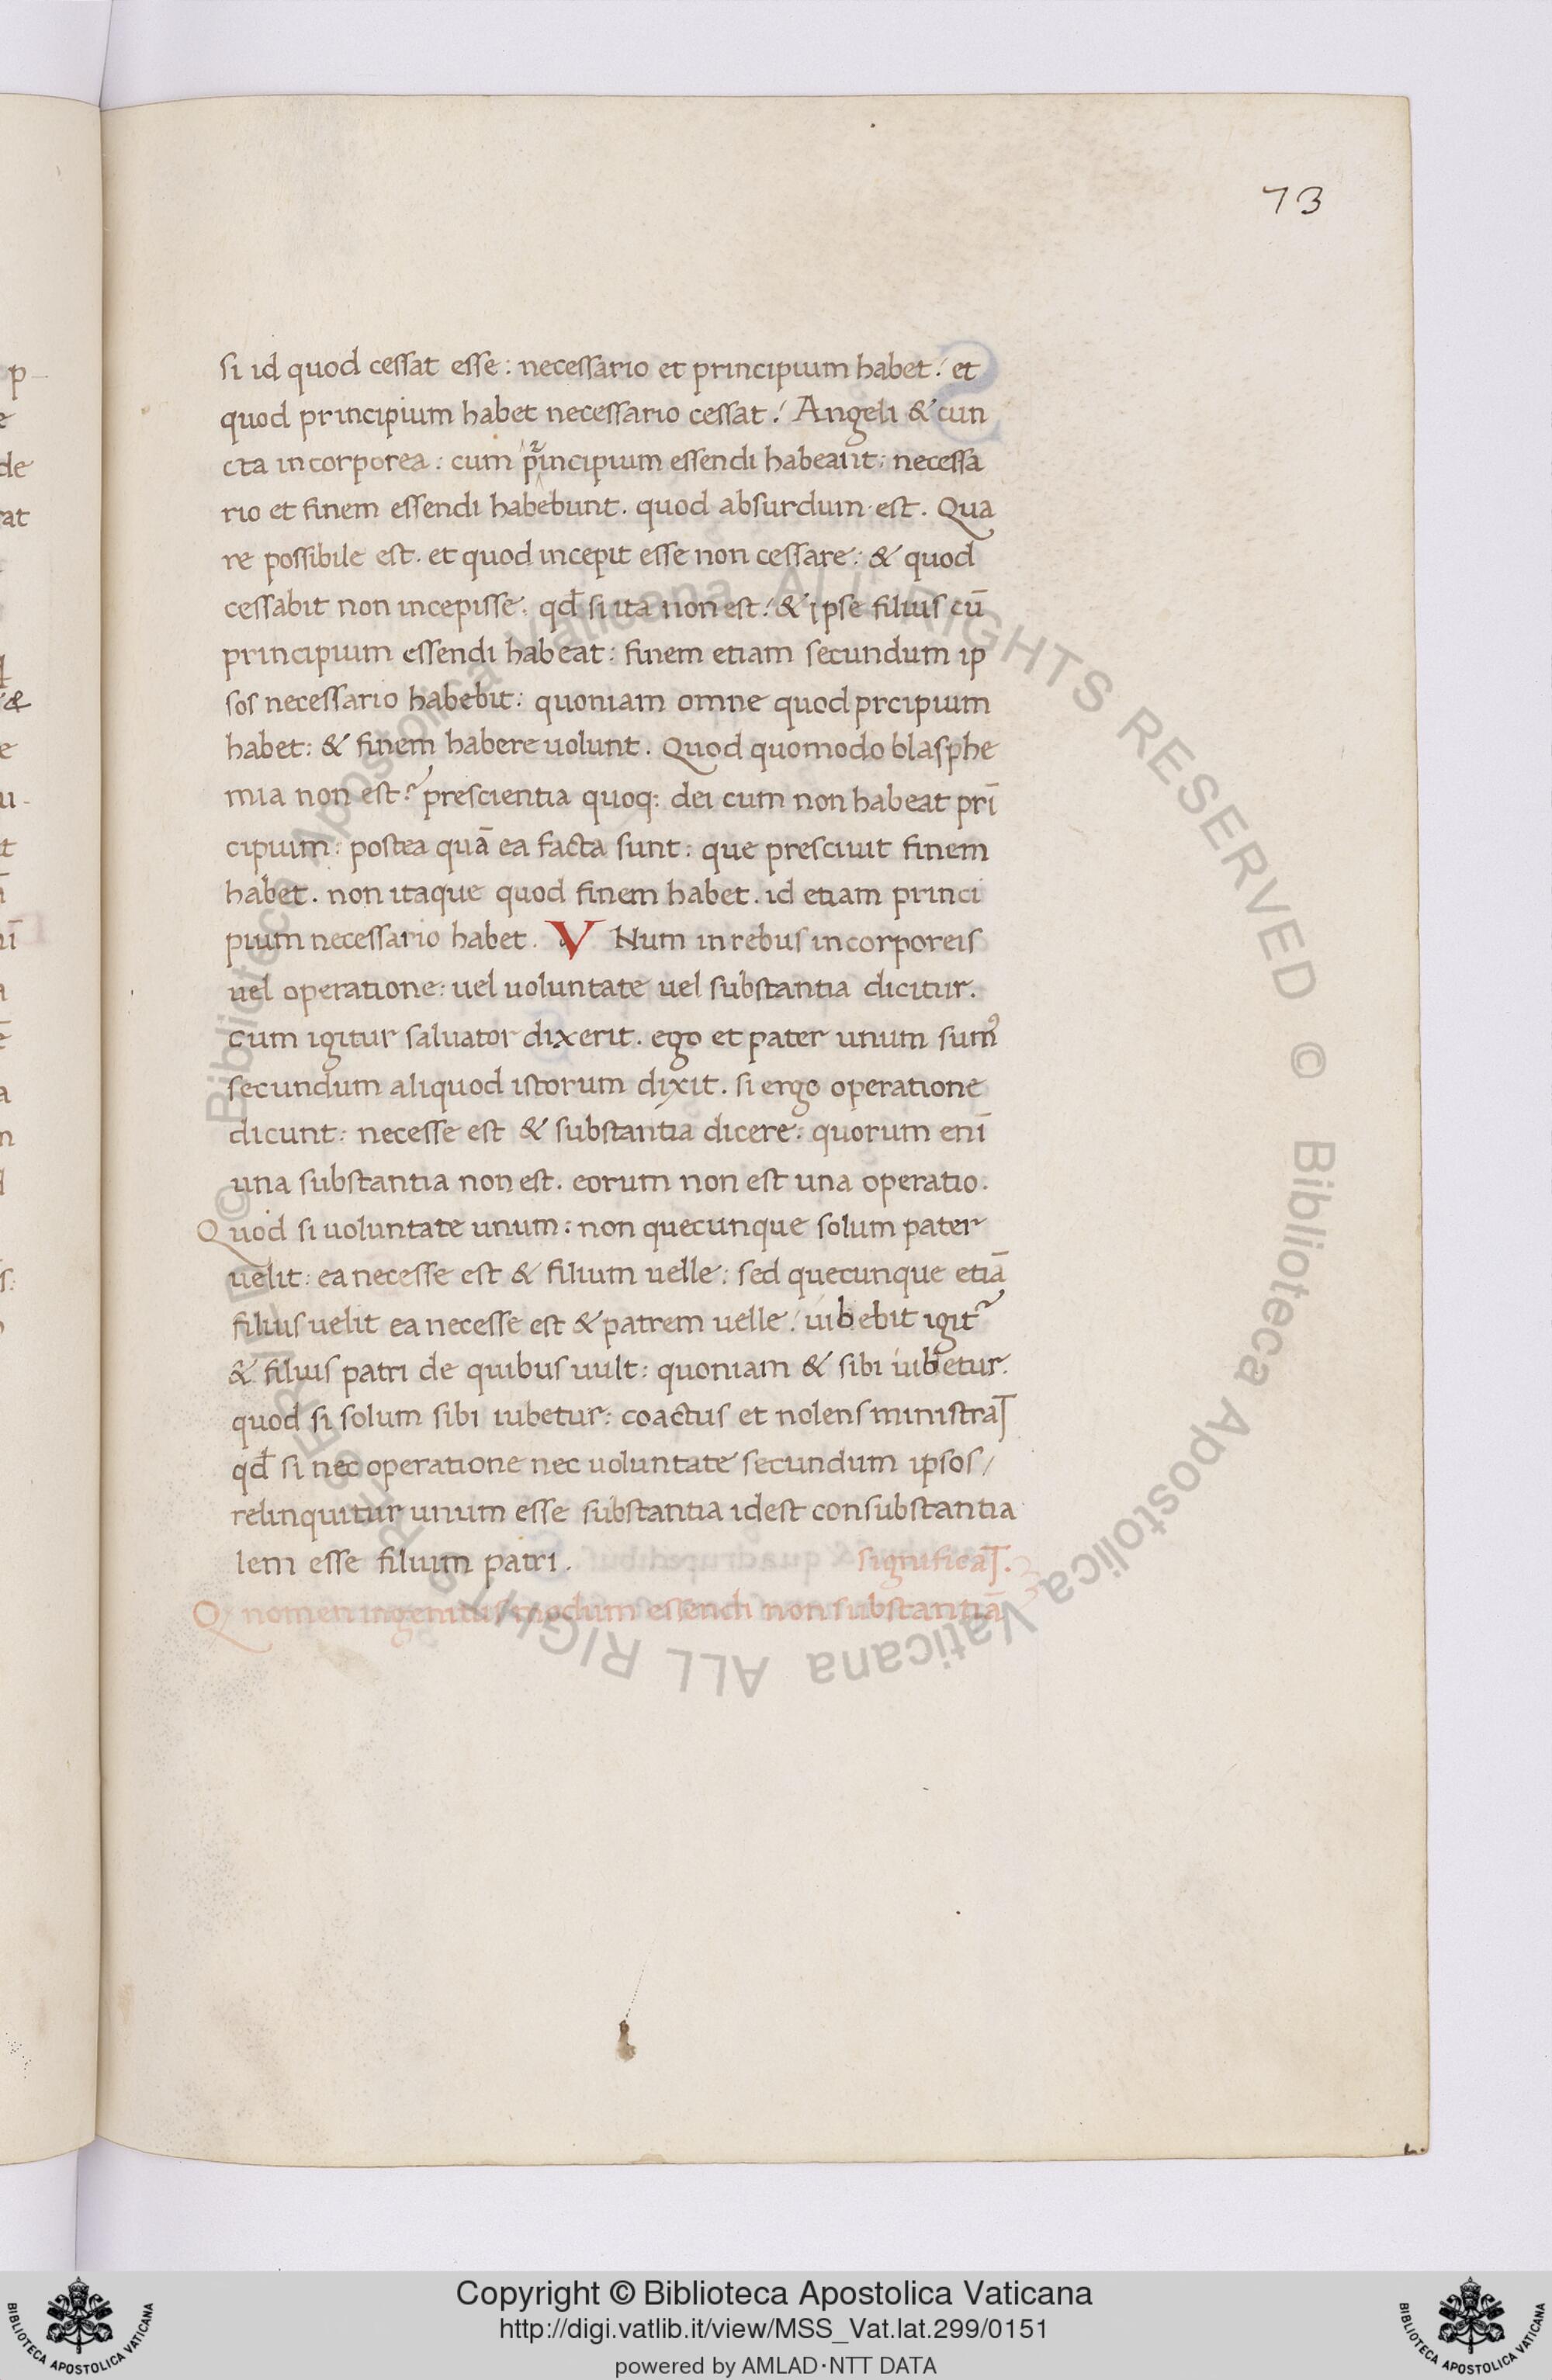 73
si id quod cessat esse: necessario et principium habet: et
quod principium habet necessario cessat: Angeli & cun
cta incorporea: cum principium essendi habeant: necessa
rio et finem essendi habebunt. quod absurdum est. Qua
re possibile est. et quod incepit esse non cessare: & quod
cessabit non incepisse. qđ si ita non est: & ipse filius cū
principium essendi habeat: finem etiam secundum ip
sos necessario habebit: quoniam omne quod prcipium
habet: & finem habere uolunt. Quod quomodo blasphe
mia non est? prescientia quoq: dei cum non habeat prī
cipium: postea quā ea facta sunt: que presciuit finem
habet. non itaque quod finem habet. id etiam princi
pium necessario habet. V Num in rebus incorporeis
uel operatione: uel uoluntate uel substantia dicitur.
Cum igitur saluator dixerit. ego et pater unum sumꝰ
secundum aliquod istorum dixit. si ergo operatione
dicunt: necesse est & substantia dicere: quorum enī
una substantia non est. eorum non est una operatio.
Quod si uoluntate unum: non quecunque solum pater
uelit: ea necesse est & filium uelle: sed quecunque etiā
filius uelit ea necesse est & patrem uelle: iubebit igit̃
& filius patri de quibus uult: quoniam & sibi iubetur.
quod si solum sibi iubetur: coactus et nolens ministrat̃
qđ si nec operatione nec uoluntate secundum ipsos/
relinquitur unum esse substantia idest consubstantia
lem esse filium patri. significat̃.
Q nomen ingenitus modum essendi non substantiā
© Biblioteca Apostolica Vaticana ALL RIGHTS RESERVED © Biblioteca Apostolica Vaticana ALL RIGHTS RESERVED
Copyright © Biblioteca Apostolica Vaticana
http://digi.vatlib.it/view/MSS_Vat.lat.299/0151
powered by AMLAD·NTT DATA
BIBLIOTECA APOSTOLICA VATICANA
BIBLIOTECA APOSTOLICA VATICANA